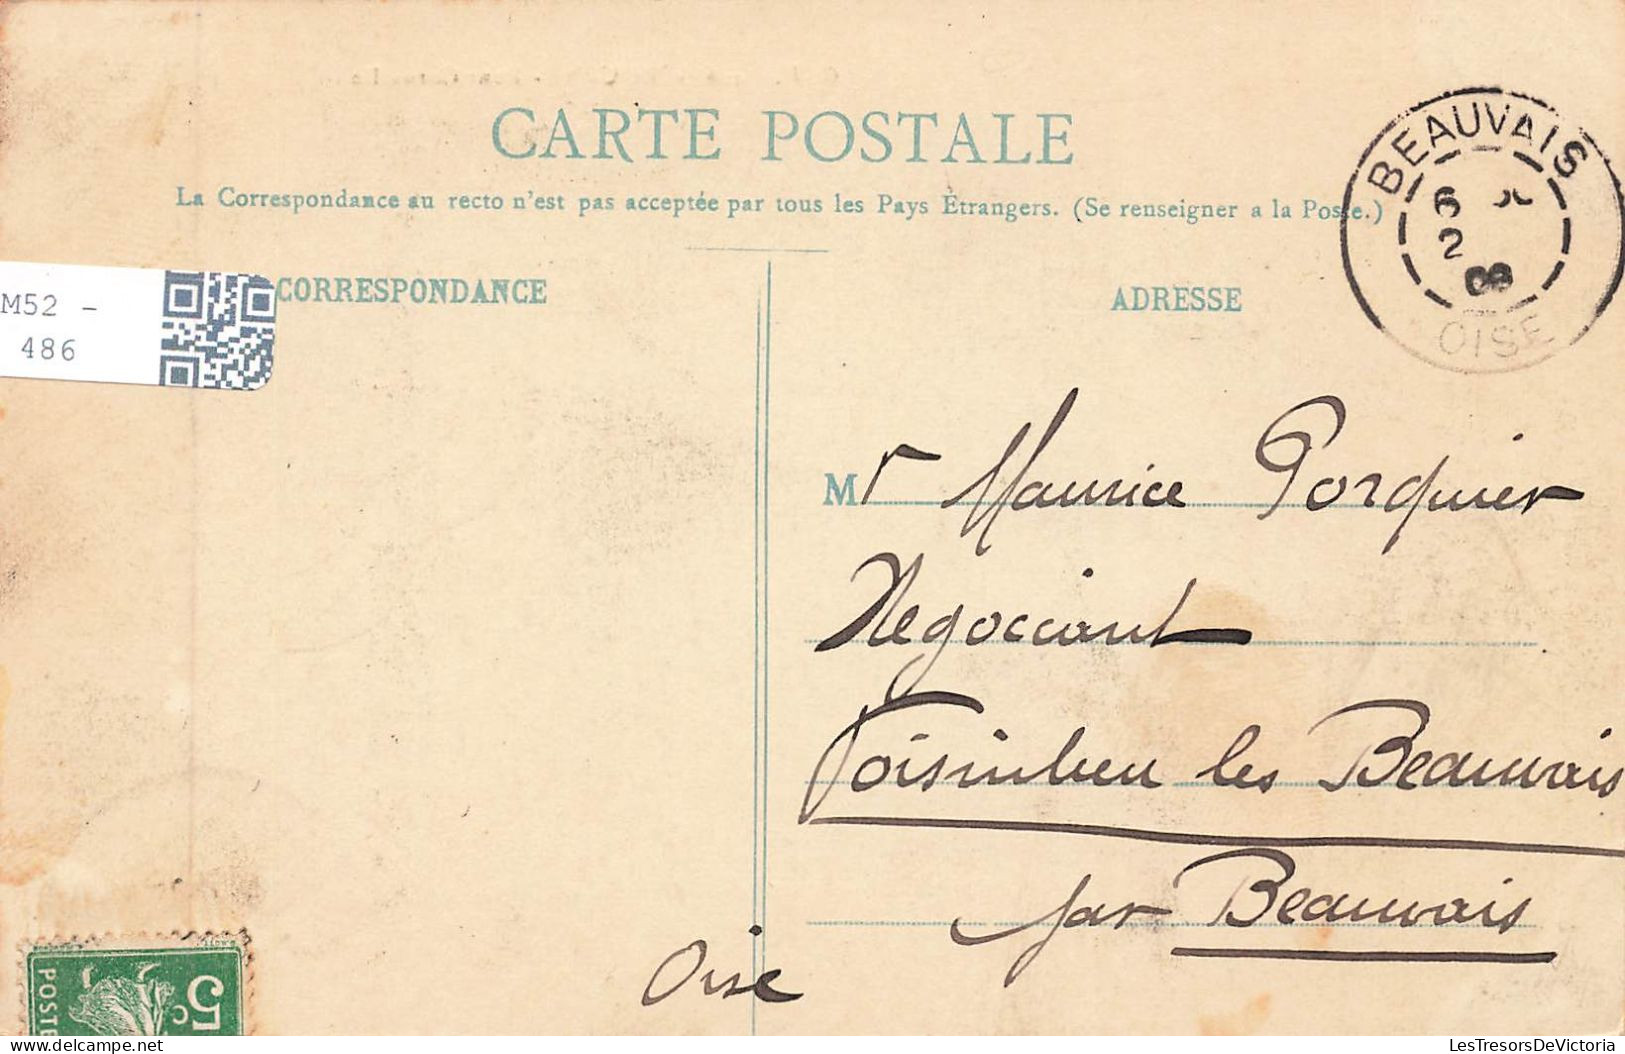 CARTE POSTALE
La Correspondance au recto n'est pas acceptée par tous les Pays Étrangers. (Se renseigner a la Poste.)
BEAUVAIS
6
2
09
OISE
M52 -
486
CORRESPONDANCE
ADRESSE
Mr Maurice Porquier
Negociant
Voisinlieu les Beauvais
par Beauvais
Oise
5c
POSTE
LesTresorsDeVictoria